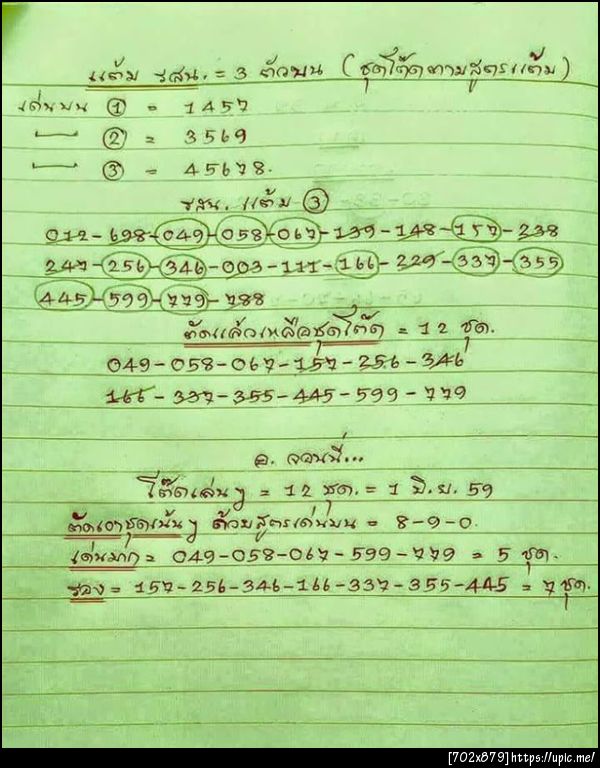 แต้ม รสน. = 3 ตัวบน (ชุดโต๊ดตามสูตรแต้ม)
เด่นบน ① = 1457
— ② = 3569
— ③ = 45678.
รสน. แต้ม ③
012-698-049-058-067-139-148-157-238
247-256-346-003-111-166-229-337-355
445-599-779-788
ตัดแล้วเหลือชุดโต๊ด = 12 ชุด.
049-058-067-157-256-346
166-337-355-445-599-779
อ. จอนนี่...
โต๊ดเล่นๆ = 12 ชุด. = 1 มิ.ย. 59
ตัดเอาชุดเน้นๆ ด้วยสูตรเด่นบน = 8-9-0.
เด่นมาก = 049-058-067-599-779 = 5 ชุด.
รอง = 157-256-346-166-337-355-445 = 7 ชุด.
[702x879]https://upic.me/